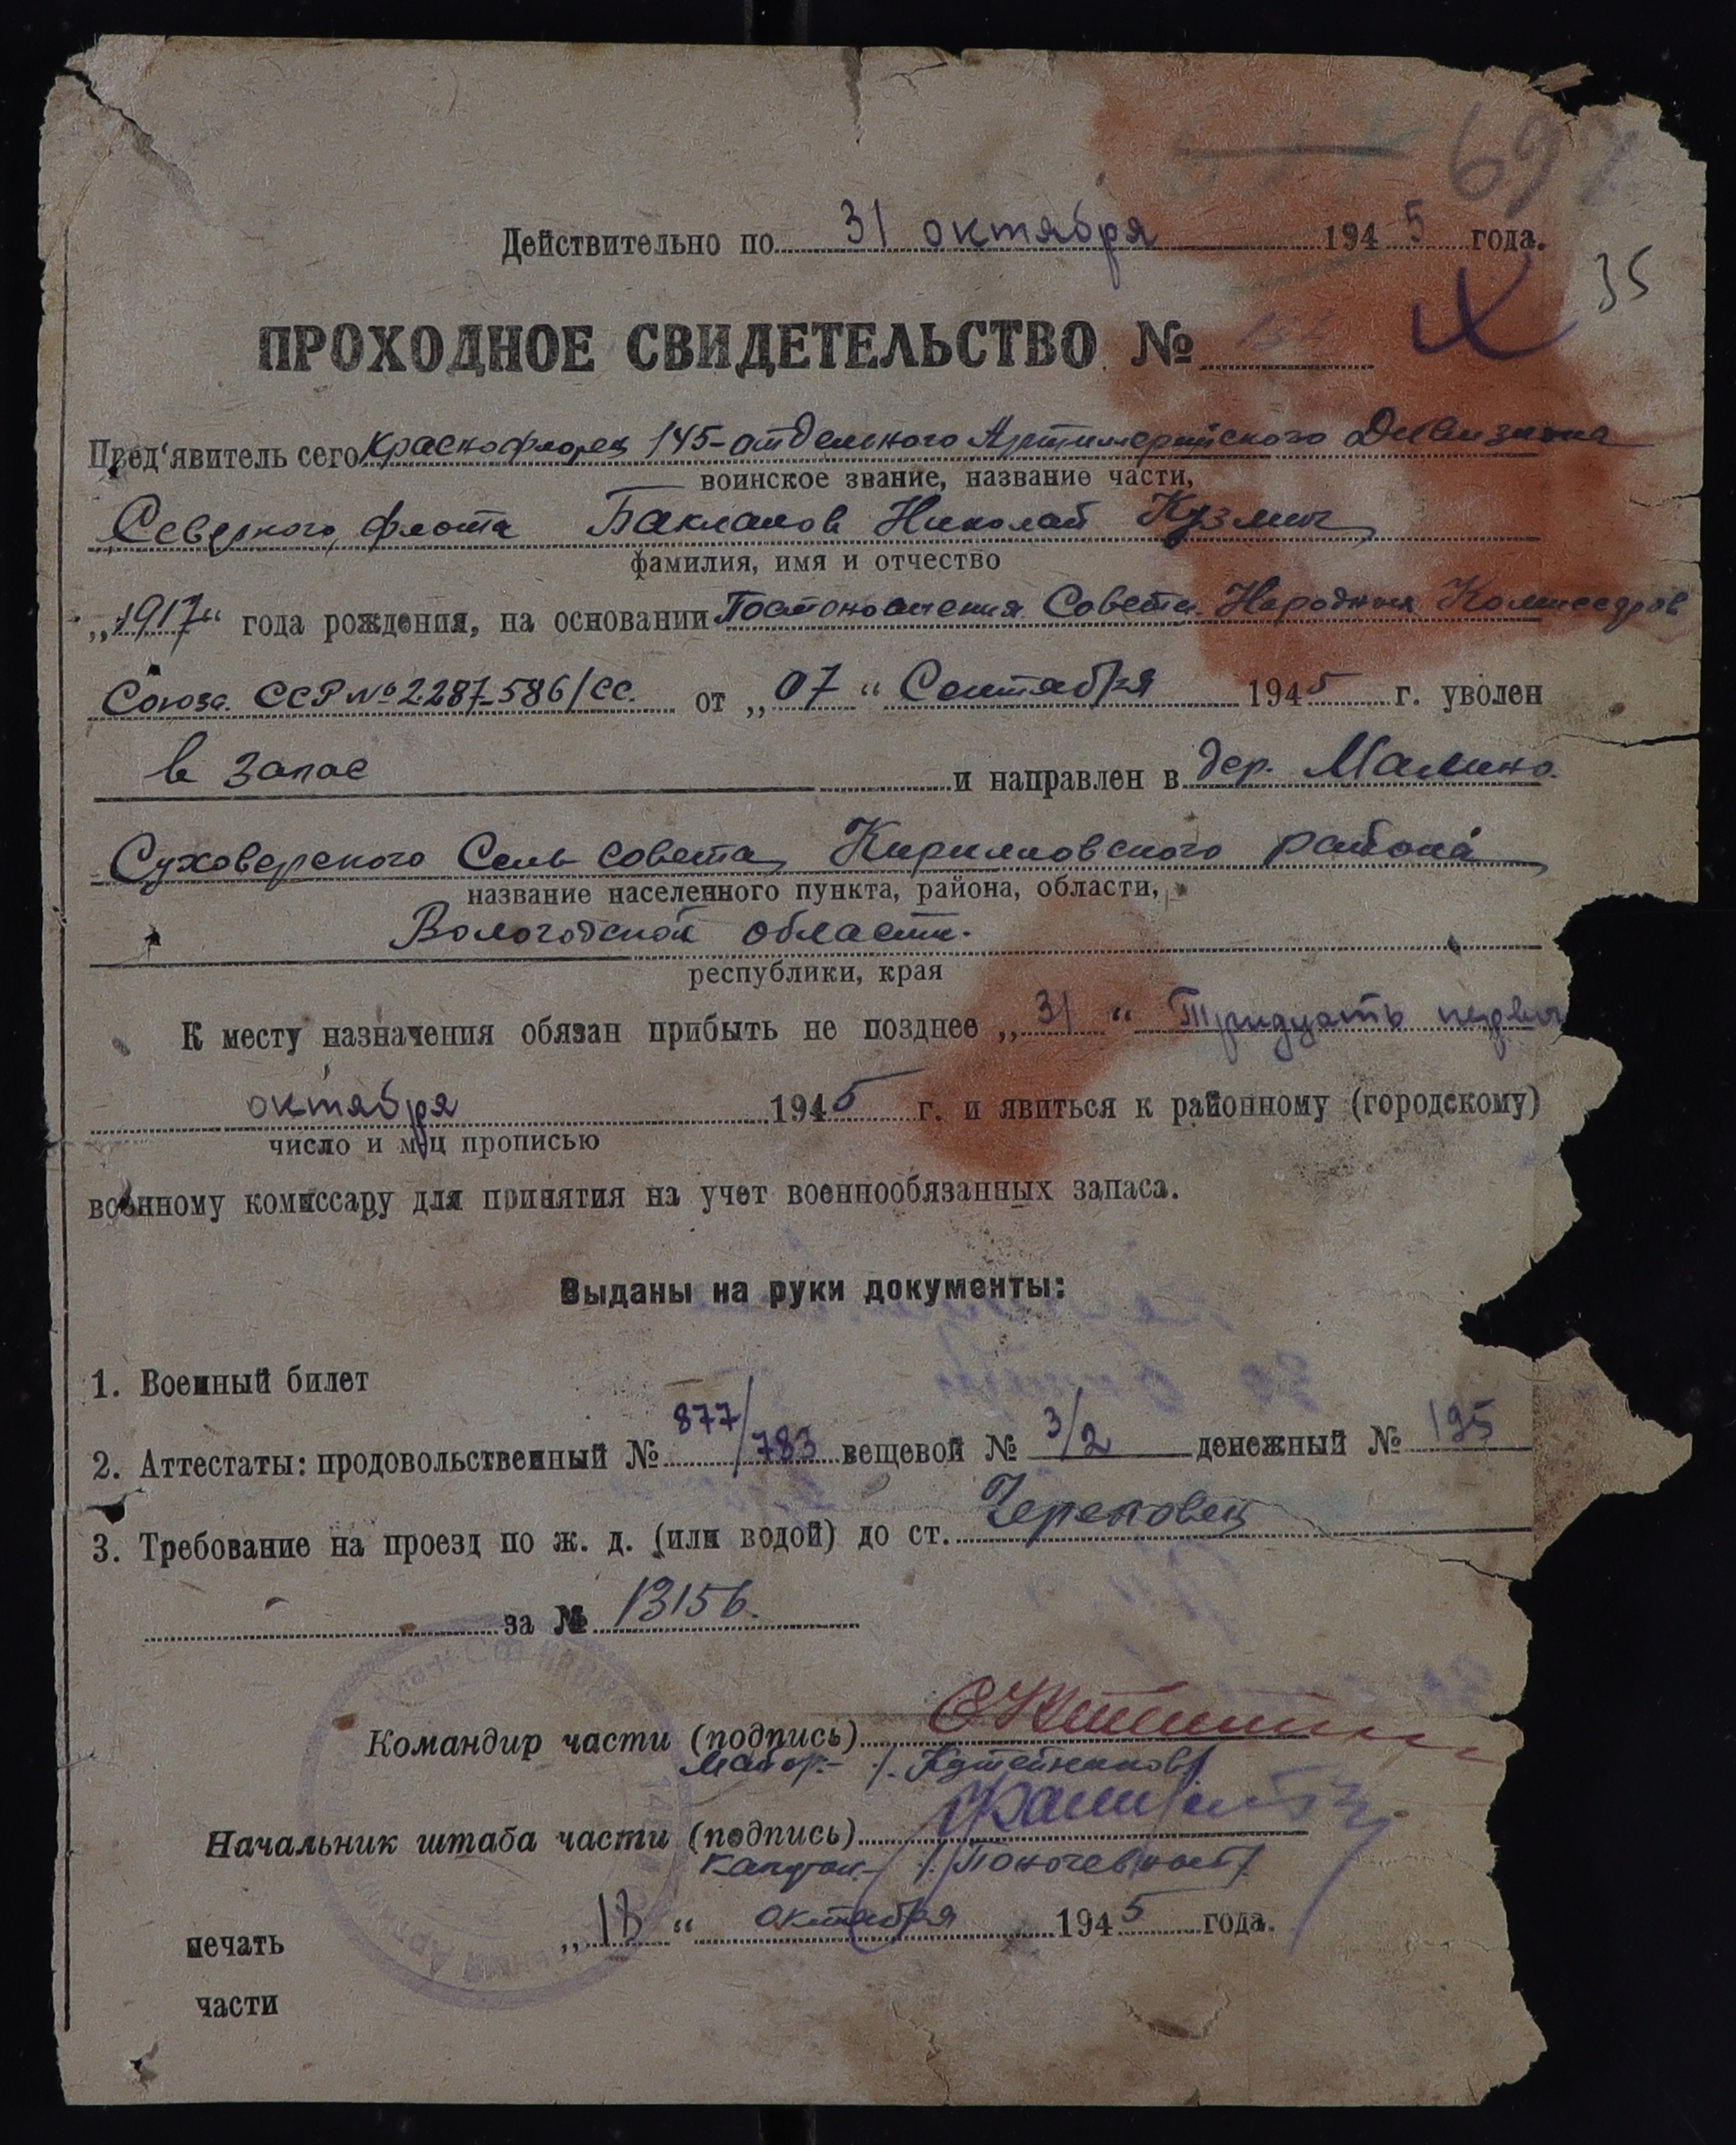 697
Действительно по 31 октября 1945 года.
35
ПРОХОДНОЕ СВИДЕТЕЛЬСТВО №
Пред'явитель сего Краснофлорец 145-отдельного Артиллерийского Дивизиона
воинское звание, название части,
Северного флота Бакланов Николай Кузмич
фамилия, имя и отчество
„1917“ года рождения, на основании Постоновления Совета Народных Комиссаров
Союза ССР № 2287-586/сс. от „07“ Сентября 1945 г. уволен
в запас и направлен в дер. Малино.
Суховерского Сельсовета, Кирилловского района
название населенного пункта, района, области,
Вологодской области.
республики, края
К месту назначения обязан прибыть не позднее „31“ Тридцать перво
октября 1945 г. и явиться к районному (городскому)
число и м-ц прописью
военному комиссару для принятия на учет военнообязанных запаса.
Выданы на руки документы:
1. Военный билет
2. Аттестаты: продовольственный № 877/783 вещевой № 3/2 денежный № 195
3. Требование на проезд по ж. д. (или водой) до ст. Череповец
за № 13156.
Командир части (подпись)
Майор- /Котейников/
Начальник штаба части (подпись)
Капитан- /Поночевный/
„18“ октября 1945 года.
печать
части